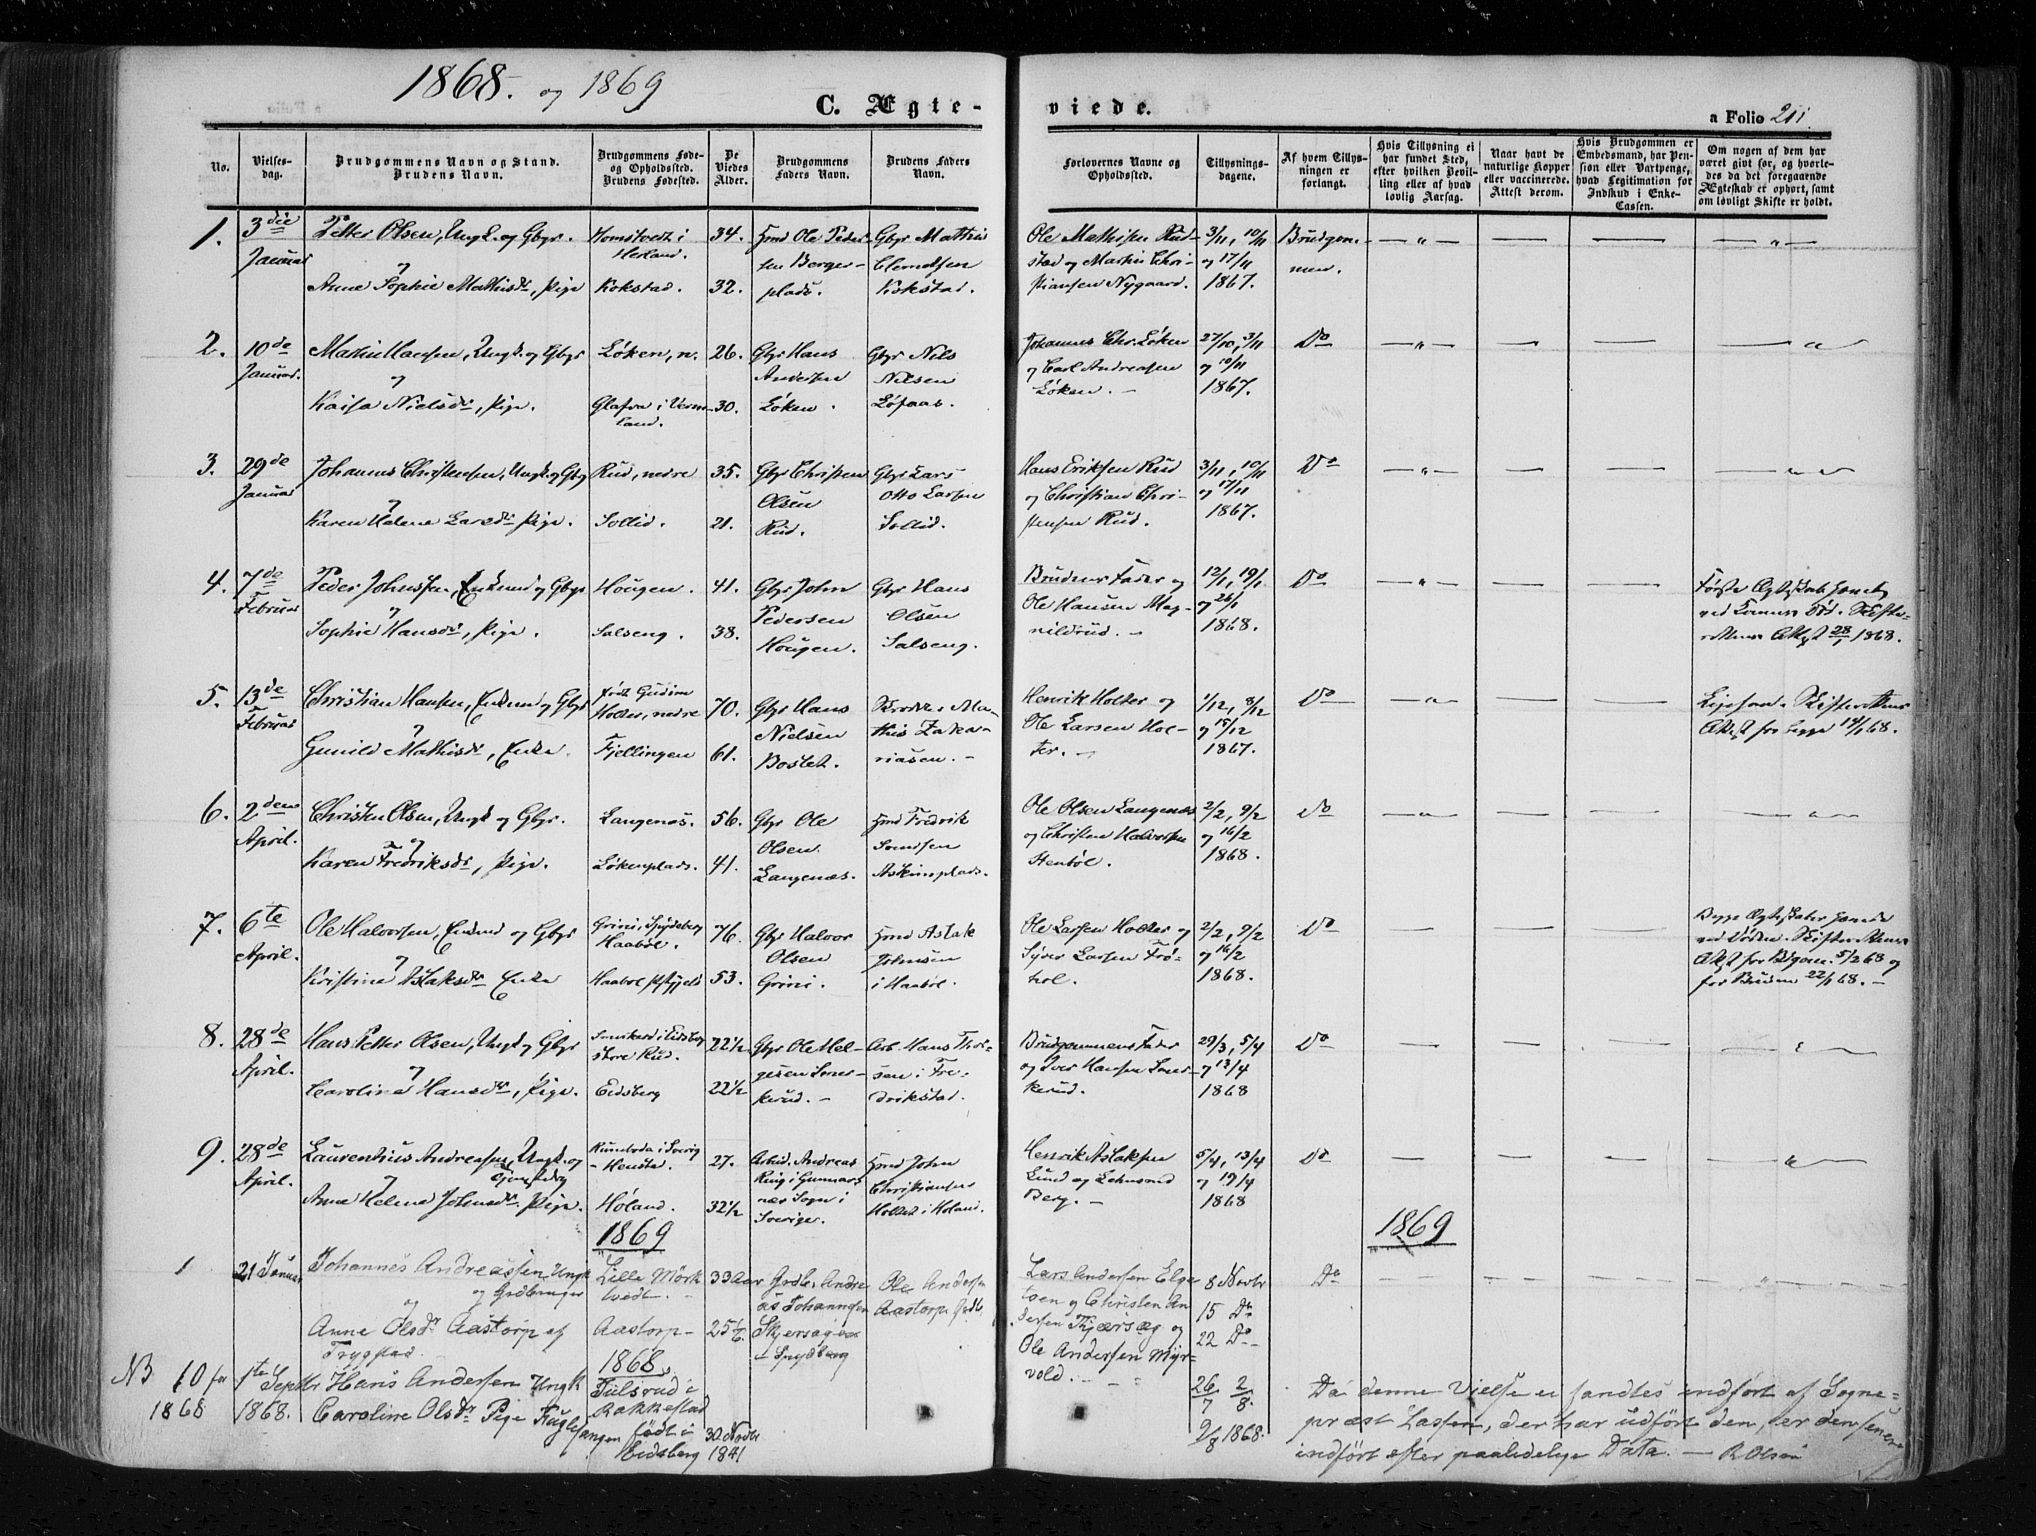 1868. og 1869
C. Ægte-
viede.
a Folio 211.
No.
Vielses-
dag.
Brudgommens Navn og Stand.
Brudens Navn.
Brudgommens Føde-
og Opholdssted.
Brudens Fødested.
De
Viedes
Alder.
Brudgommens
Faders Navn.
Brudens Faders
Navn.
Forlovernes Navne og
Opholdssted.
Tillysnings-
dagene.
Af hvem Tillys-
ningen er
forlangt.
Hvis Tillysning ei
har fundet Sted,
efter hvilken Bevil-
ling eller af hvad
lovlig Aarsag.
Naar havt de
naturlige Kopper
eller vaccinerede.
Attest derom.
Hvis Brudgommen er
Embedsmand, har Pen-
sion eller Vartpenge,
hvad Legitimation for
Indskud i Enke-
Cassen.
Om nogen af dem har
været givt før, og hvorle-
des da det foregaaende
Ægteskab er ophørt, samt
om lovligt Skifte er holdt.
1.
3die
Januar
Petter Olsen, Ungk. og Gbr.
og
Anne Sophie Mathisdr, Pige
Homstvedt i
Høland.
Kokstad.
34.
32.
Hmd Ole Peder-
sen Berger-
plads.
Gbr Mathis
Clemetsen
Kokstad.
Ole Mathisen Rud-
stad og Martin Chri-
stiansen Nygaard.
3/11, 10/11
og 17/11
1867.
Brudgom-
men.
2.
10de
Januar.
Martin Hansen, Ungk. og Gbr
og
Kaisa Nielsdr, Pige.
Løken, n.
Glafva i Verm-
land.
26.
30.
Gbr Hans
Andersen
Løken.
Gbr Nils
Nilsen
Løfaas.
Johannes Chr. Løken
og Carl Andreasen
Løken.
27/10, 3/11
og 10/11
1867.
Do
3.
29de
Januar
Johannes Christensen, Ungk. og Gbr
og
Karen Helene Larsdr Pige.
Rud, nedre
Sollid.
35.
21.
Gbr Christen
Olsen
Rud.
Gbr Lars
Otto Larsen
Sollid.
Hans Eriksen Rud
og Christian Chri-
stensen Rud.
3/11, 10/11
og 17/11
1867.
Do
4.
7de
Februar
Peder Johnsen, Enkemd og Gbr
og
Sophie Hansdr, Pige.
Hougen.
Salseng.
41.
38.
Gbr John
Pedersen
Hougen.
Gbr Hans
Olsen
Salseng.
Brudens Fader og
Ole Hansen Mag-
nildrud.
12/1, 19/1
og 26/1
1868.
Do
Første Ægteskab hævet
ved Konens Død. Skifte-
rettens Attest 28/1 1868.
5.
13de
Februar
Christian Hansen, Enkem og Gbr
og
Gunild Mathisdr, Enke
født Gudim
Holter, nedre
Fjellingen
70.
61.
Gbr Hans
Nielsen
Boslet.
Ma-
this Zaka-
riasen.
Henrik Holter og
Ole Larsen Hol-
ter.
1/12, 8/12
og 15/12
1867.
Do
Ligesom. Skifterettens
Attest for begge 14/1 68.
6.
2den
April.
Christen Olsen, Ungk og Gbr.
og
Karen Fredriksdr, Pige.
Langenæs.
Løkenplads.
56.
41.
Gbr Ole
Olsen
Langenæs.
Hmd Fredrik
Svendsen
Askimplads.
Ole Olsen Langenæs
og Christen Halvorsen
Stenbøl.
2/2, 9/2
og 16/2
1868.
Do
7.
6te
April.
Ole Halvorsen, Enkemd og Gbr
og
Kristine Aslaksdr Enke
Grini, Spydeberg
Haabøl.
Haabøl Pstgjeld
76.
53.
Gbr Halvor
Olsen
Grini.
Hmd Aslak
Johnsen
i Haabøl.
Ole Larsen Holter og
Syver Larsen Frø-
hol.
2/2, 9/2
og 16/2
1868.
Do
Begge Ægteskaber hævede
ved Døden. Skifterettens
Attest for Bdgom. 5/2 68 og
for Bruden 22/1 68.
8.
28de
April.
Hans Petter Olsen, Ungk og Gbr
og
Caroline Hansdr, Pige.
i Eidsberg
store Rud.
Eidsberg
22½
22½
Gbr Ole Hel-
gesen Smer-
kerud.
Arb. Hans Thor-
sen i Fre-
drikstad.
Brudgommens Fader
og Iver Hansen Smer-
kerud.
29/3, 5/4
og 13/4
1868
Do
9.
28de
April.
Laurentius Andreasen, Ungk. og
og
Anne Helene Johnsdr. Pige.
i Sverig
Høland.
27.
32½
Arbeid. Andreas
Ring i Gunnars-
næs Sogn i
Sverige.
Hmd John
Christiansen
Holtet i Høland.
Henrik Aslaksen
Lund og
Berg.
5/4, 13/4
og 19/4
1868
Do
1869
1869
1
21 Januar
Johannes Andreassen Ungk
og Grdbruger
og
Anne Olsdr Aastorp af
Trygstad.
Lille Mørk
tvedt.
Aastorp
33 Aar
25½
Grdb. Andre
as Johannesen
Skjersager
Spydberg
Ole Andersen
Aastorp Grdb.
Lars Andersen Elge
tsen og Christen An
dersen Kjærsæg og
Ole Andersen Myr-
vold.
8 Novbr
15 Do
22 Do
Do
1868
NB 10 for
1868
1ste Septbr
1868.
Hans Andersen Ungk
Caroline Olsdr Pige
Tulsrud i
Rakkestad
født i
Eidsberg
30 Novbr
1841
26/7 2/8
9/8 1868.
Da denne Vielse ei fandtes indført af Sogne-
præst Lassen, der har udført den, er den senere
indført efter paalidelige Data. — R Olsen